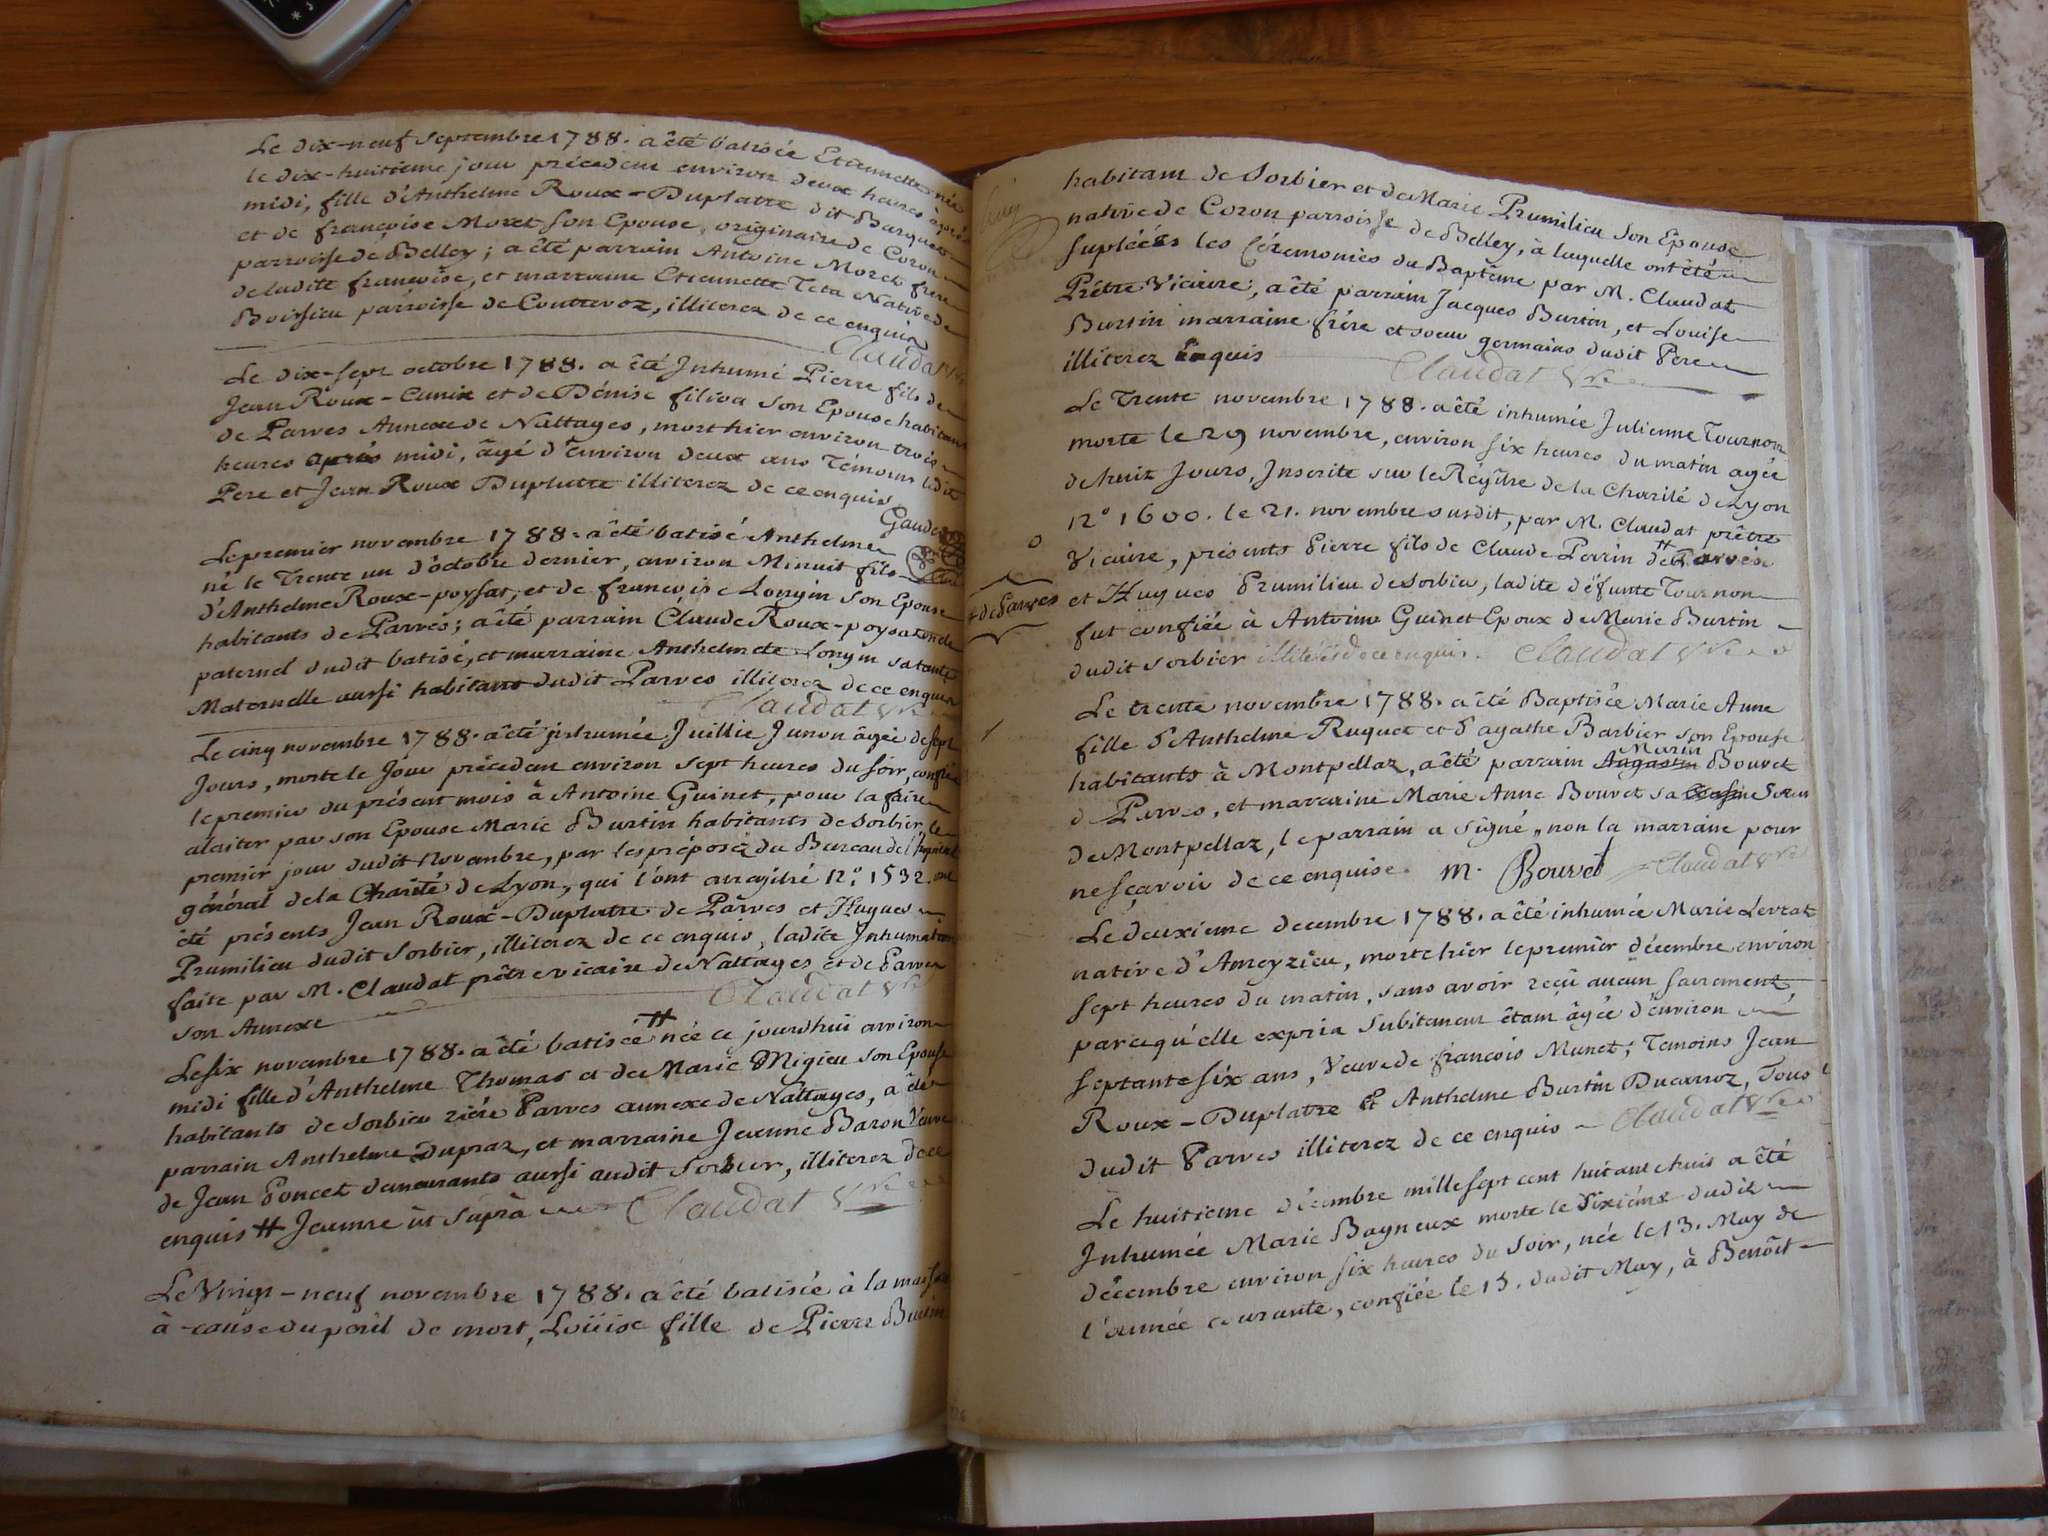 Le dix-neuf Septembre 1788. a êté batisée Etiennette née
le dix-huitieme jour précedent environ deux heures après
midi, fille d'Anthelme Roux-Duplatre dit Barquet
et de françoise Moret son Epouse, originaire de Coron
parroisse de Belley; a êté parrain Antoine Moret frere
de ladite françoise, et marraine Etiennette Teta Native de
Boissieu parroisse de Contrevoz, illiterez de ce enquis
Claudat
Le dix-sept octobre 1788. a êté Inhumé Pierre fils de
Jean Roux-Cunix et de Dénise filiva son Epouse habitans
de Parves Annexe de Nattages, mort hier environ trois
heures après midi, âgé d'environ deux ans Témoins ledit
Pere et Jean Roux Duplattre illiterez de ce enquis
Le premier novembre 1788. a êté batisé Anthelme
né le Trente un d'octobre dernier, environ Minuit fils
d'Anthelme Roux-poysat, et de françoise Longin son Epouse
habitants de Parves; a êté parrain Claude Roux-poysat oncle
paternel dudit batisé, et marraine Anthelmete Longin sa tante
Maternelle aussi habitans dudit Parves illiterez de ce enquis
Claudat Vre
Le cinq novembre 1788. a êté inhumée Juillie Junon âgée de sept
Jours, morte le Jour précedent environ sept heures du soir, confiée
le premier du présent mois à Antoine Guinet, pour la faire
alaiter par son Epouse Marie Burtin habitants de Sorbier, le
premier jour dudit Novembre, par les préposéz du Bureau de l'hopital
général de la Charité de Lyon, qui l'ont enregitré N°. 1532. ont
êté présents Jean Roux-Duplatre de Parves et Hugues
Prumilieu dudit Sorbier, illiterez de ce enquis, ladite Inhumation
faite par M. Claudat prêtre vicaire de Nattages et de Parves
son Annexe Claudat Vre
Le six novembre 1788. a êté batisée # née ce jourdhui environ
midi fille d'Anthelme Thomas et de Marie Migieu son Epouse
habitants de Sorbier rière Parves annexe de Nattages, a êté
parrain Anthelme Dupraz, et marraine Jeanne Baron Veuve
de Jean Poncet demeurants aussi audit Sorbier, illiterez de ce
enquis # Jeanne ut Suprà Claudat Vre
Le Vingt-neuf novembre 1788. a êté batisée à la maison
à cause du péril de mort, Loüise fille de Pierre Burtin
habitant de Sorbier et de Marie Prumilieu son Epouse
native de Coron parroisse de Belley, à laquelle ont êté
supléés les Céremonies du Baptême par M. Claudat
Prêtre Vicaire, a êté parrain Jacques Burtin, et Louise
Burtin marraine frére et soeur germains dudit Pere
illiterez Enquis Claudat Vre
Le Trente novembre 1788. a êté inhumée Julienne Tournon
morte le 29 novembre, environ six heures du matin agée
de huit Jours, Inscrite sur le Régitre de la Charité de Lyon
N° 1600. le 21. novembre susdit, par M. Claudat prêtre
Vicaire, présents Pierre fils de Claude Perrin # de Parves
+ de Parves
et Hugues Prumilieu de Sorbier, ladite défunte Tournon
fut confiée à Antoine Guinet Epoux de Marie Burtin
dudit Sorbier illiterés de ce enquis. Claudat Vre
Le trente novembre 1788. a êté Baptisée Marie Anne
fille d'Anthelme Ruquet et d'agathe Barbier son Epouse
Marin
habitants à Montpellaz, a êté parrain Augustin Bouvet
d Parves, et marraine Marie Anne Bouvet sa Soeur
de Montpellaz, le parrain a signé, non la marraine pour
ne sçavoir de ce enquise. m. Bouvet Claudat Vre
Le deuxieme decembre 1788. a êté inhumée Marie Levrat
native d'Ameyzieu, morte hier le premier décembre environ
sept heures du matin, sans avoir reçu aucun sacrement
parcequ'elle expira subitement êtant âgée d'environ
septante six ans, Veuve de françois Munet; Temoins Jean
Roux-Duplatre Et Anthelme Burtin Ducarroz, Tous
dudit Parves illiterez de ce enquis Claudat Vre
Le huitieme décembre mille sept cent huitante huit a êté
Inhumée Marie Bagneux morte le Sixiéme dudit
décembre environ six heures du soir, née le 13. May de
l'année courante, confiée le 15. dudit May, à Benôit